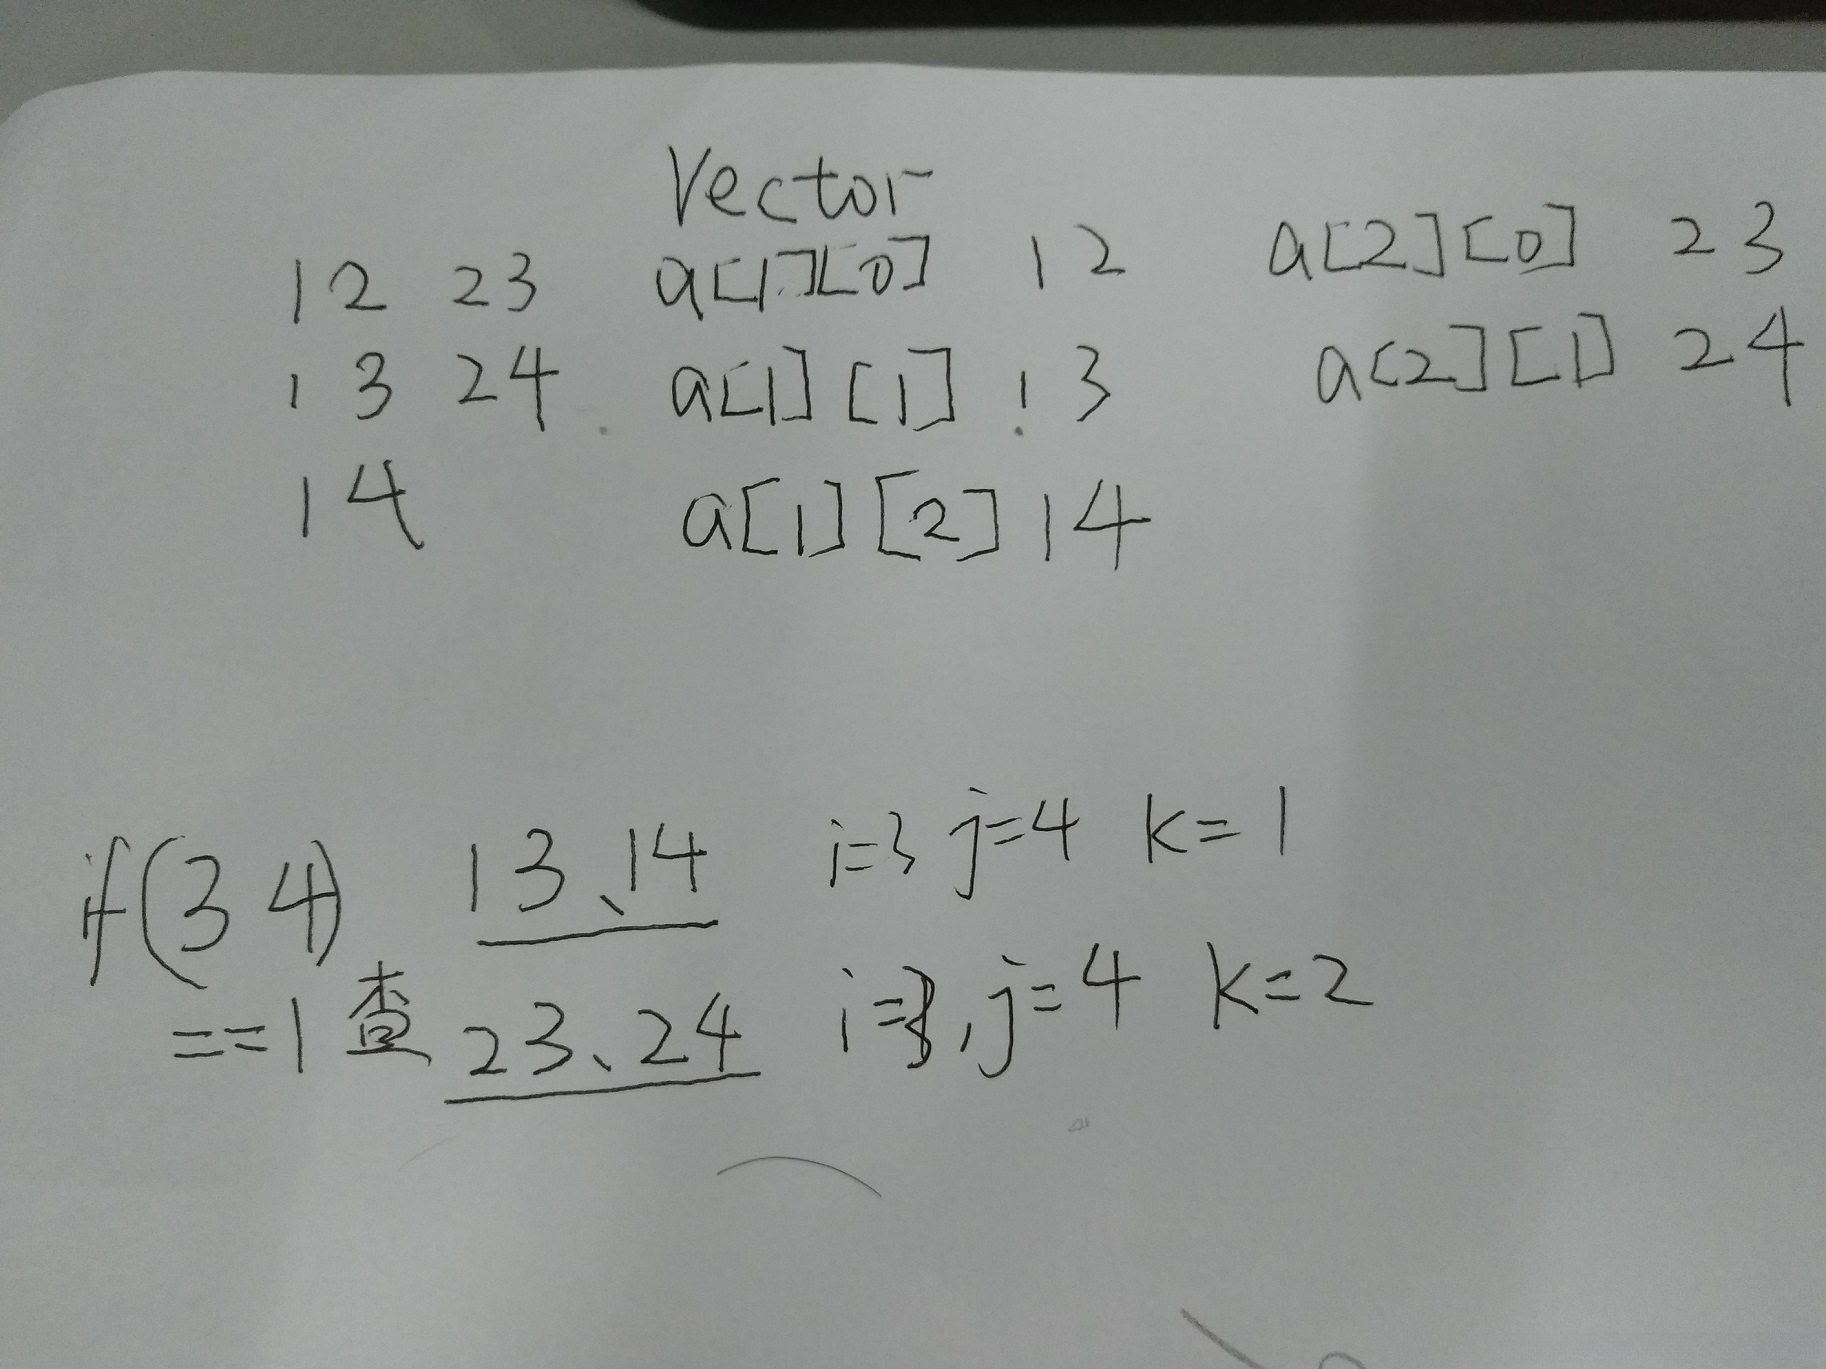 Vector
12 23 a[1][0] 12 a[2][0] 23
13 24 a[1][1] 13 a[2][1] 24
14 a[1][2] 14
if(34) 13、14 i=3 j=4 k=1
==1 查 23、24 i=3,j=4 k=2